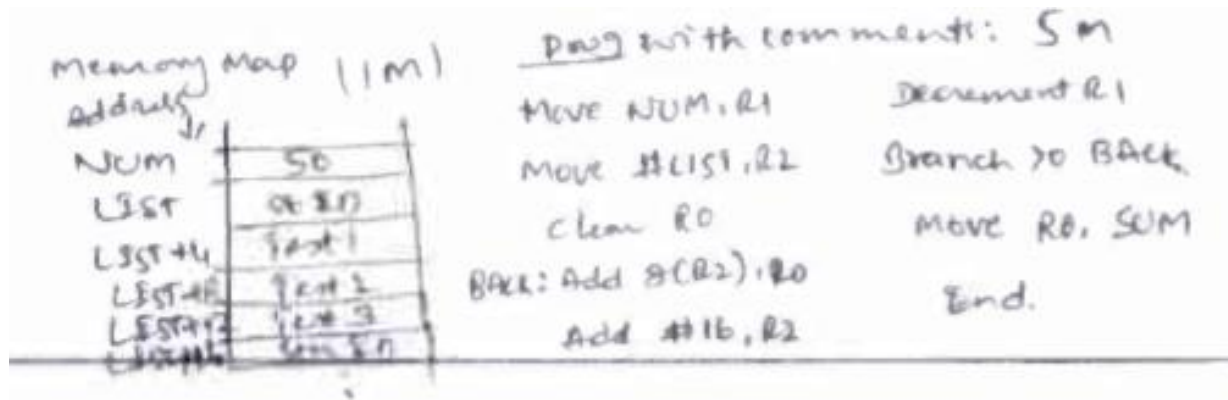 Memory Map (1M)
Address
NUM 50
LIST St ID
LIST+4 Test 1
LIST+8 Test 2
LIST+12 Test 3
LIST+16
Prog with comments: 5M
Move NUM, R1
Move #LIST, R2
Clear R0
BACK: Add 8(R2), R0
Add #16, R2
Decrement R1
Branch >0 BACK
Move R0, SUM
End.